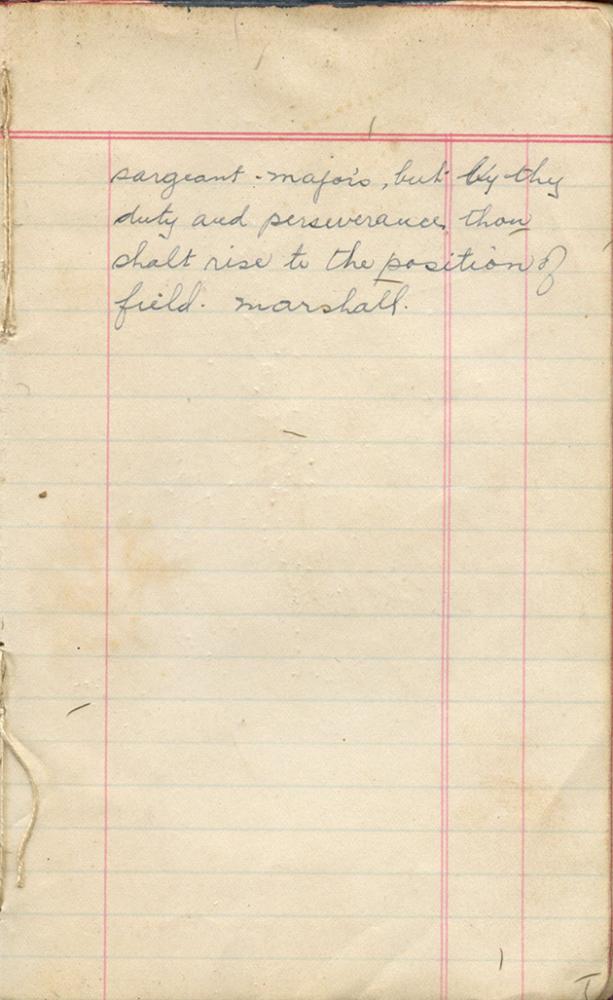 sargeant-majors, but by thy
duty and perseverance, thou
shalt rise to the position of
field. marshall.